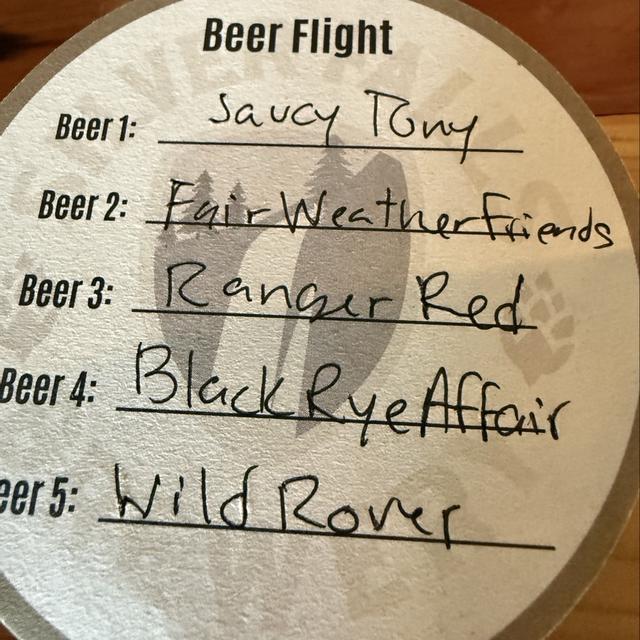 Beer Flight
Beer 1: Saucy Tony
Beer 2: Fair Weather Friends
Beer 3: Ranger Red
Beer 4: Black Rye Affair
eer 5: Wild Rover